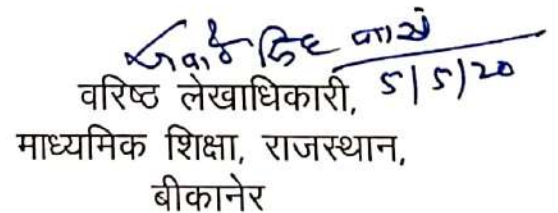 5/5/20
वरिष्ठ लेखाधिकारी,
माध्यमिक शिक्षा, राजस्थान,
बीकानेर